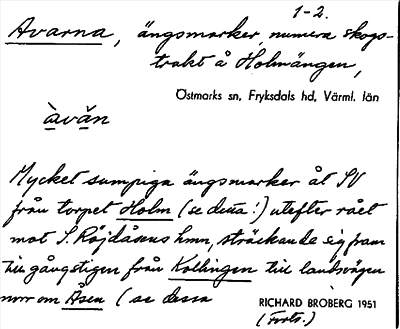 1-2.
Avarna, ängsmarker, numera skogs-
trakt å Holmängen,
Östmarks sn, Fryksdals hd, Värml. län
àvăn
Mycket sumpiga ängsmarker åt SV
från torpet Holm (se dessa!) utefter rået
mot S. Röjdåsens hmn, sträckande sig fram
till gångstigen från Kollingen till landsvägen
norr om Åsen (se dessa
RICHARD BROBERG 1951
(Forts.)